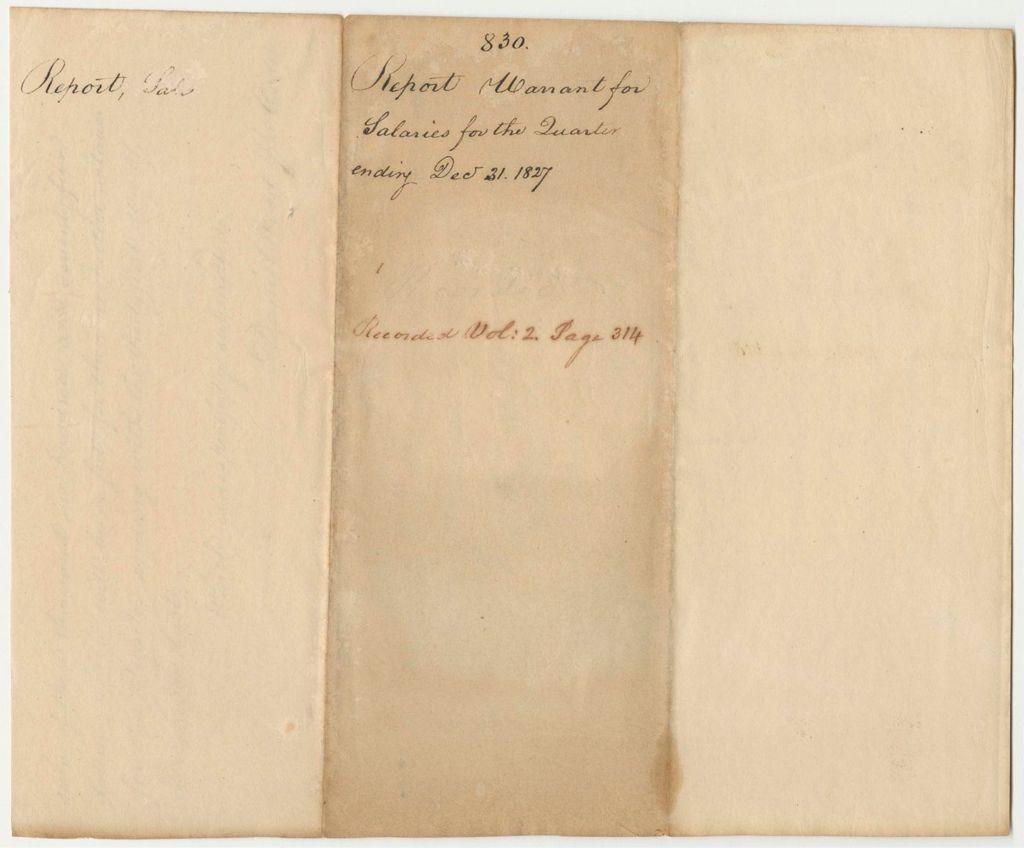 Report, Sals
830.
Report Warrant for
Salaries for the Quarter
ending Dec 31. 1827
Recorded Vol: 2. Page 314